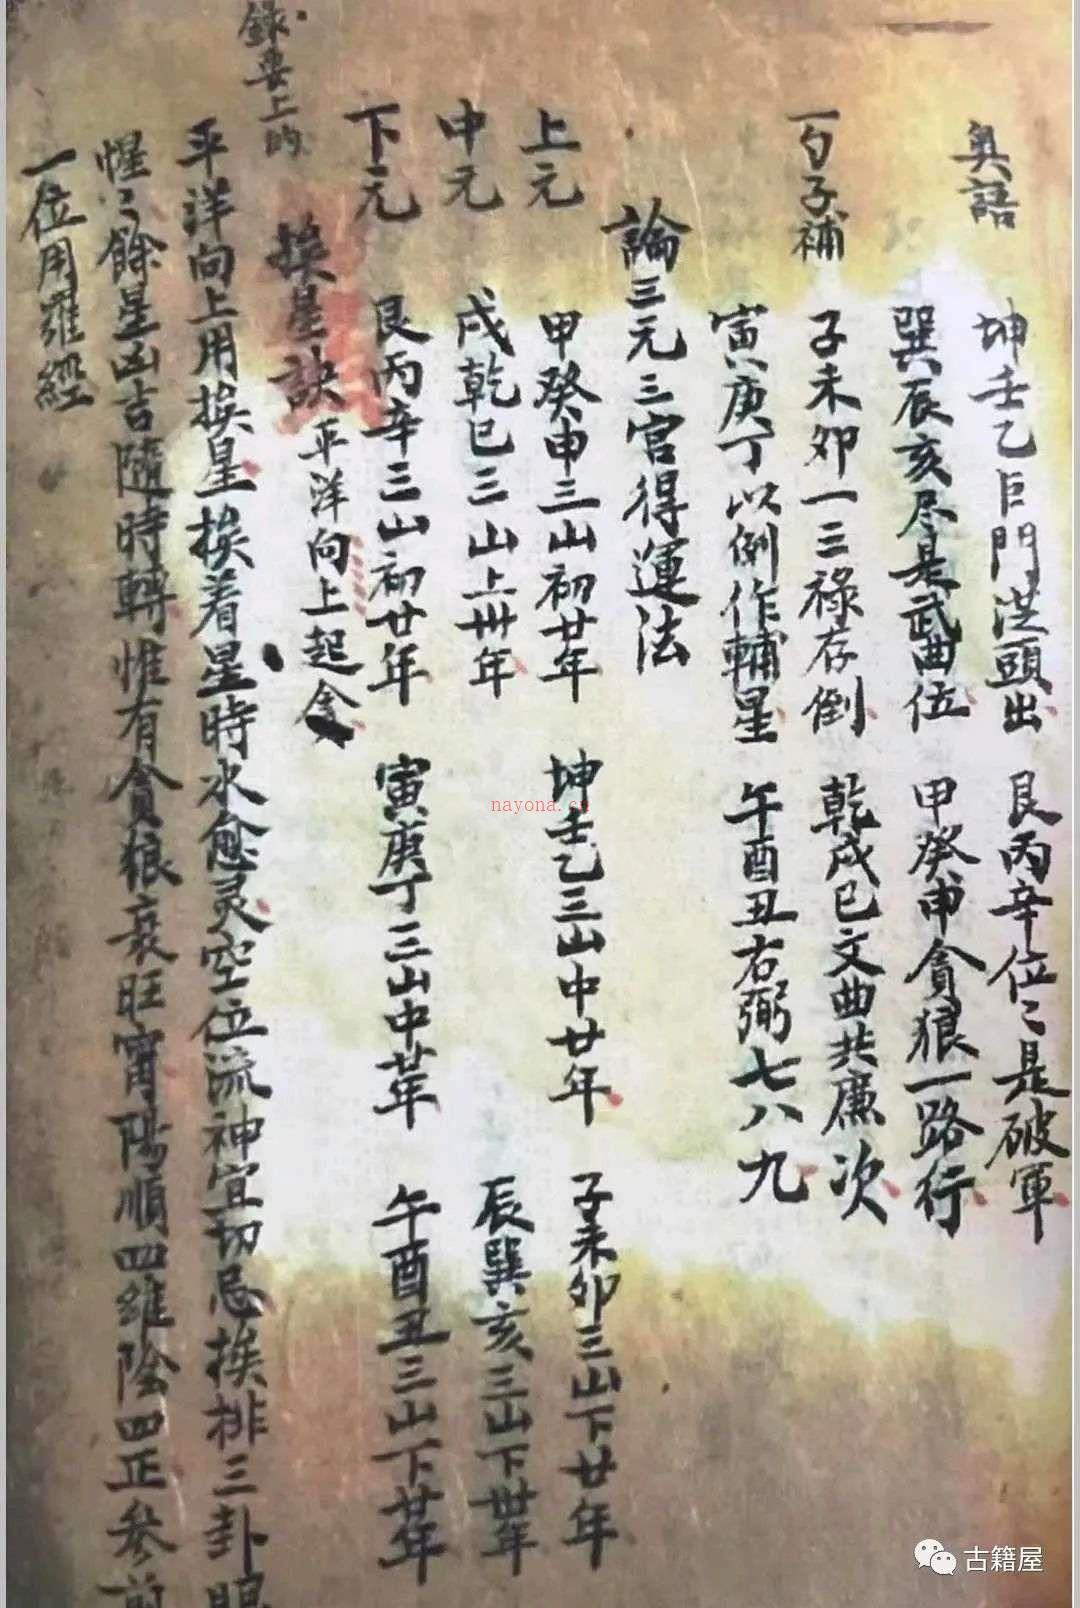 奥語
坤壬乙巨門從頭出 艮丙辛位〻是破軍
巽辰亥尽是武曲位 甲癸申貪狼一路行
一勺子補
子未卯一三祿存倒 乾戌巳文曲共廉次
寅庚丁以例作輔星 午酉丑右弼七八九
論三元三宮得運法
上元 甲癸申三山初廿年 坤壬乙三山中廿年 子未卯三山下廿年
中元 戌乾巳三山上卅年 辰巽亥三山下卅年
下元 艮丙辛三山初廿年 寅庚丁三山中廿年 午酉丑三山下廿年
挨星訣 平洋向上起貪
錄要上的
平洋向上用挨星挨着星時水愈灵空位流神宜切忌挨排三卦
惺〻餘星凶吉隨時轉惟有貪狼衰旺宵陽順四維陰四正參前
一位用羅經
nayona.cn
古籍屋